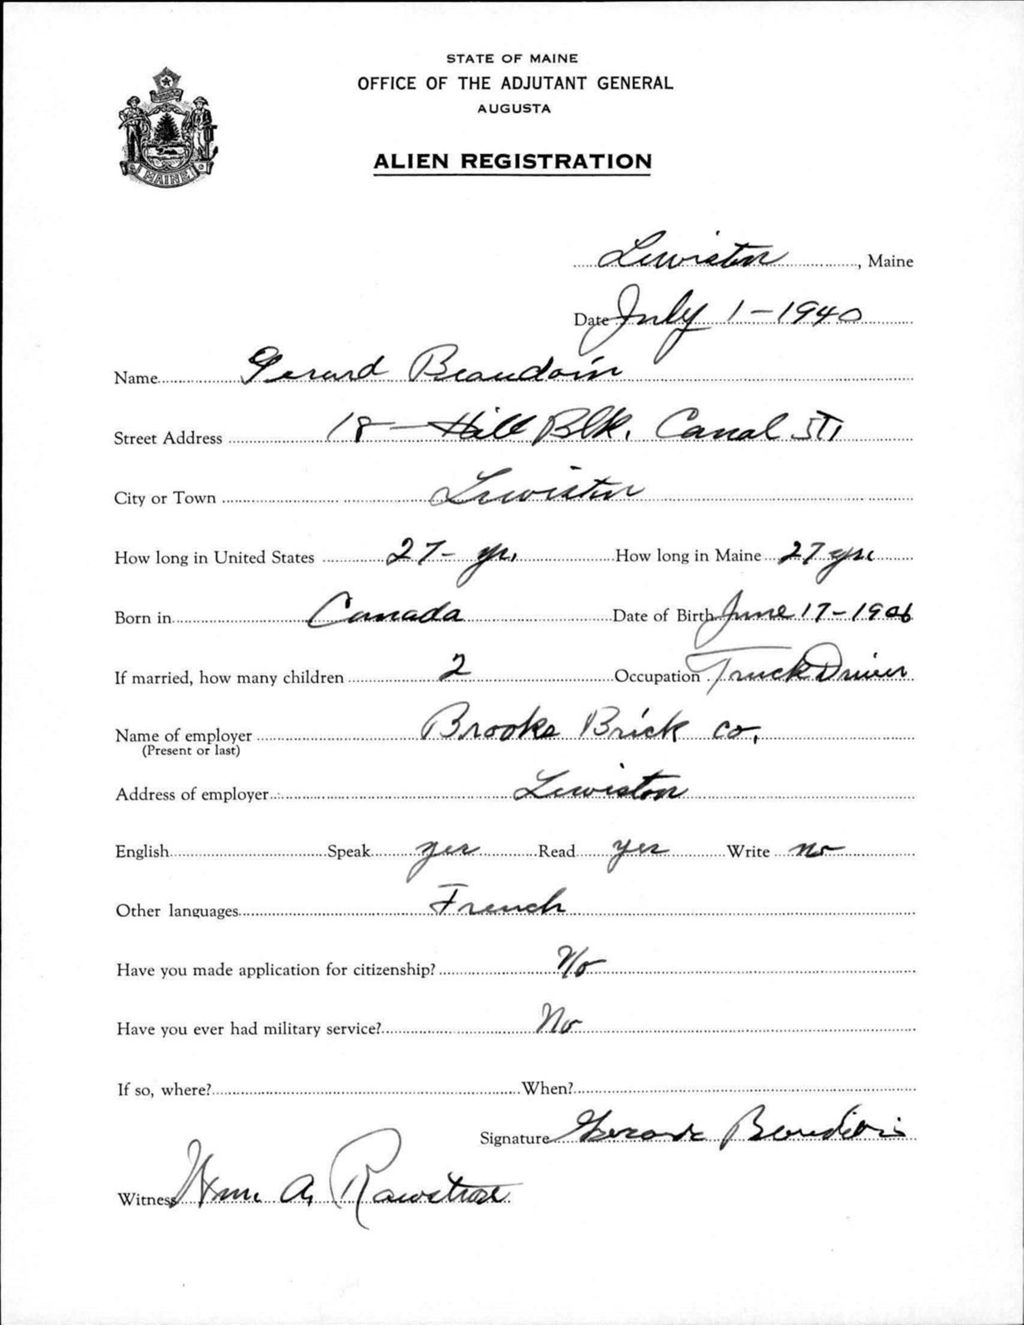 STATE OF MAINE
OFFICE OF THE ADJUTANT GENERAL
AUGUSTA
ALIEN REGISTRATION
MAINE
Lewiston, Maine
Date July 1-1940
Name Gerard Beaudoin
Street Address 18- Hill Blk. Canal St.
City or Town Lewiston
How long in United States 27- yr. How long in Maine 27 yrs.
Born in Canada Date of Birth June 17-1906
If married, how many children 2 Occupation Truck Driver
Name of employer Brooks Brick Co.
(Present or last)
Address of employer Lewiston
English Speak yes Read yes Write no
Other languages French
Have you made application for citizenship? No
Have you ever had military service? No
If so, where? When?
Signature Beaudoin
Witness Wm. A. Rawstron